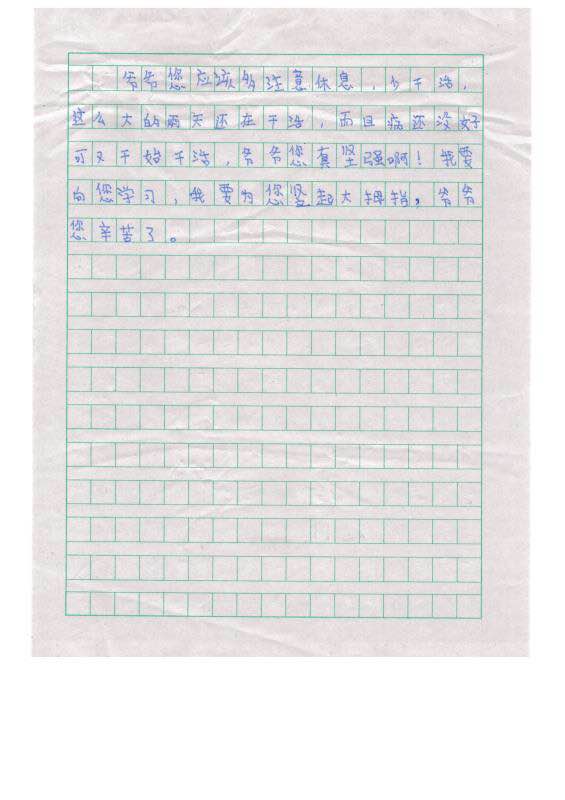 爷爷您应该多注意休息，少干活，
这么大的雨天还在干活，而且病还没好
可又干始干活，爷爷您真坚强啊！我要
向您学习，我要为您竖起大拇指，爷爷
您辛苦了。